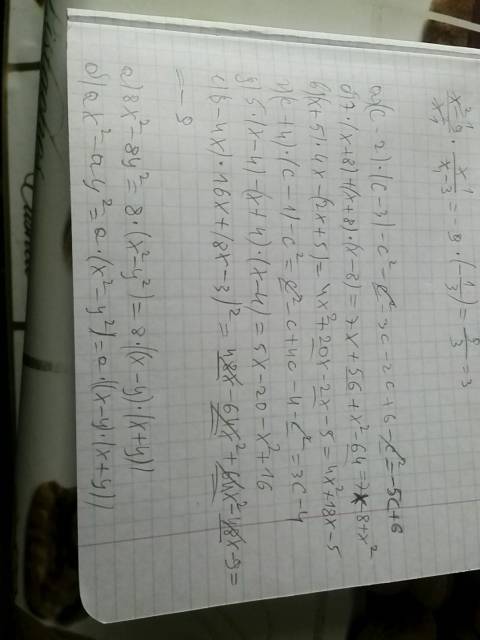 x²-9/x · x/x-3 = -9 · (-1/3) = 9/3 = 3
а)(c-2)·(c-3)-c²=c²-3c-2c+6-c²=-5c+6
б)7·(x+8)+(x+8)·(x-8)=7x+56+x²-64=7x-8+x²
в)(x+5)·4x-(2x+5)=4x²+20x-2x-5=4x²+18x-5
г)(c+4)·(c-1)-c²=c²-c+4c-4-c²=3c-4
д)5·(x-4)-(x+4)·(x-4)=5x-20-x²+16
е)(6-4x)·16x+(8x-3)²=48x-64x²+64x²-48x-9=
=-9
а)8x²-8y²=8·(x²-y²)=8·((x-y)·(x+y))
б)ax²-ay²=a·(x²-y²)=a·((x-y)·(x+y))